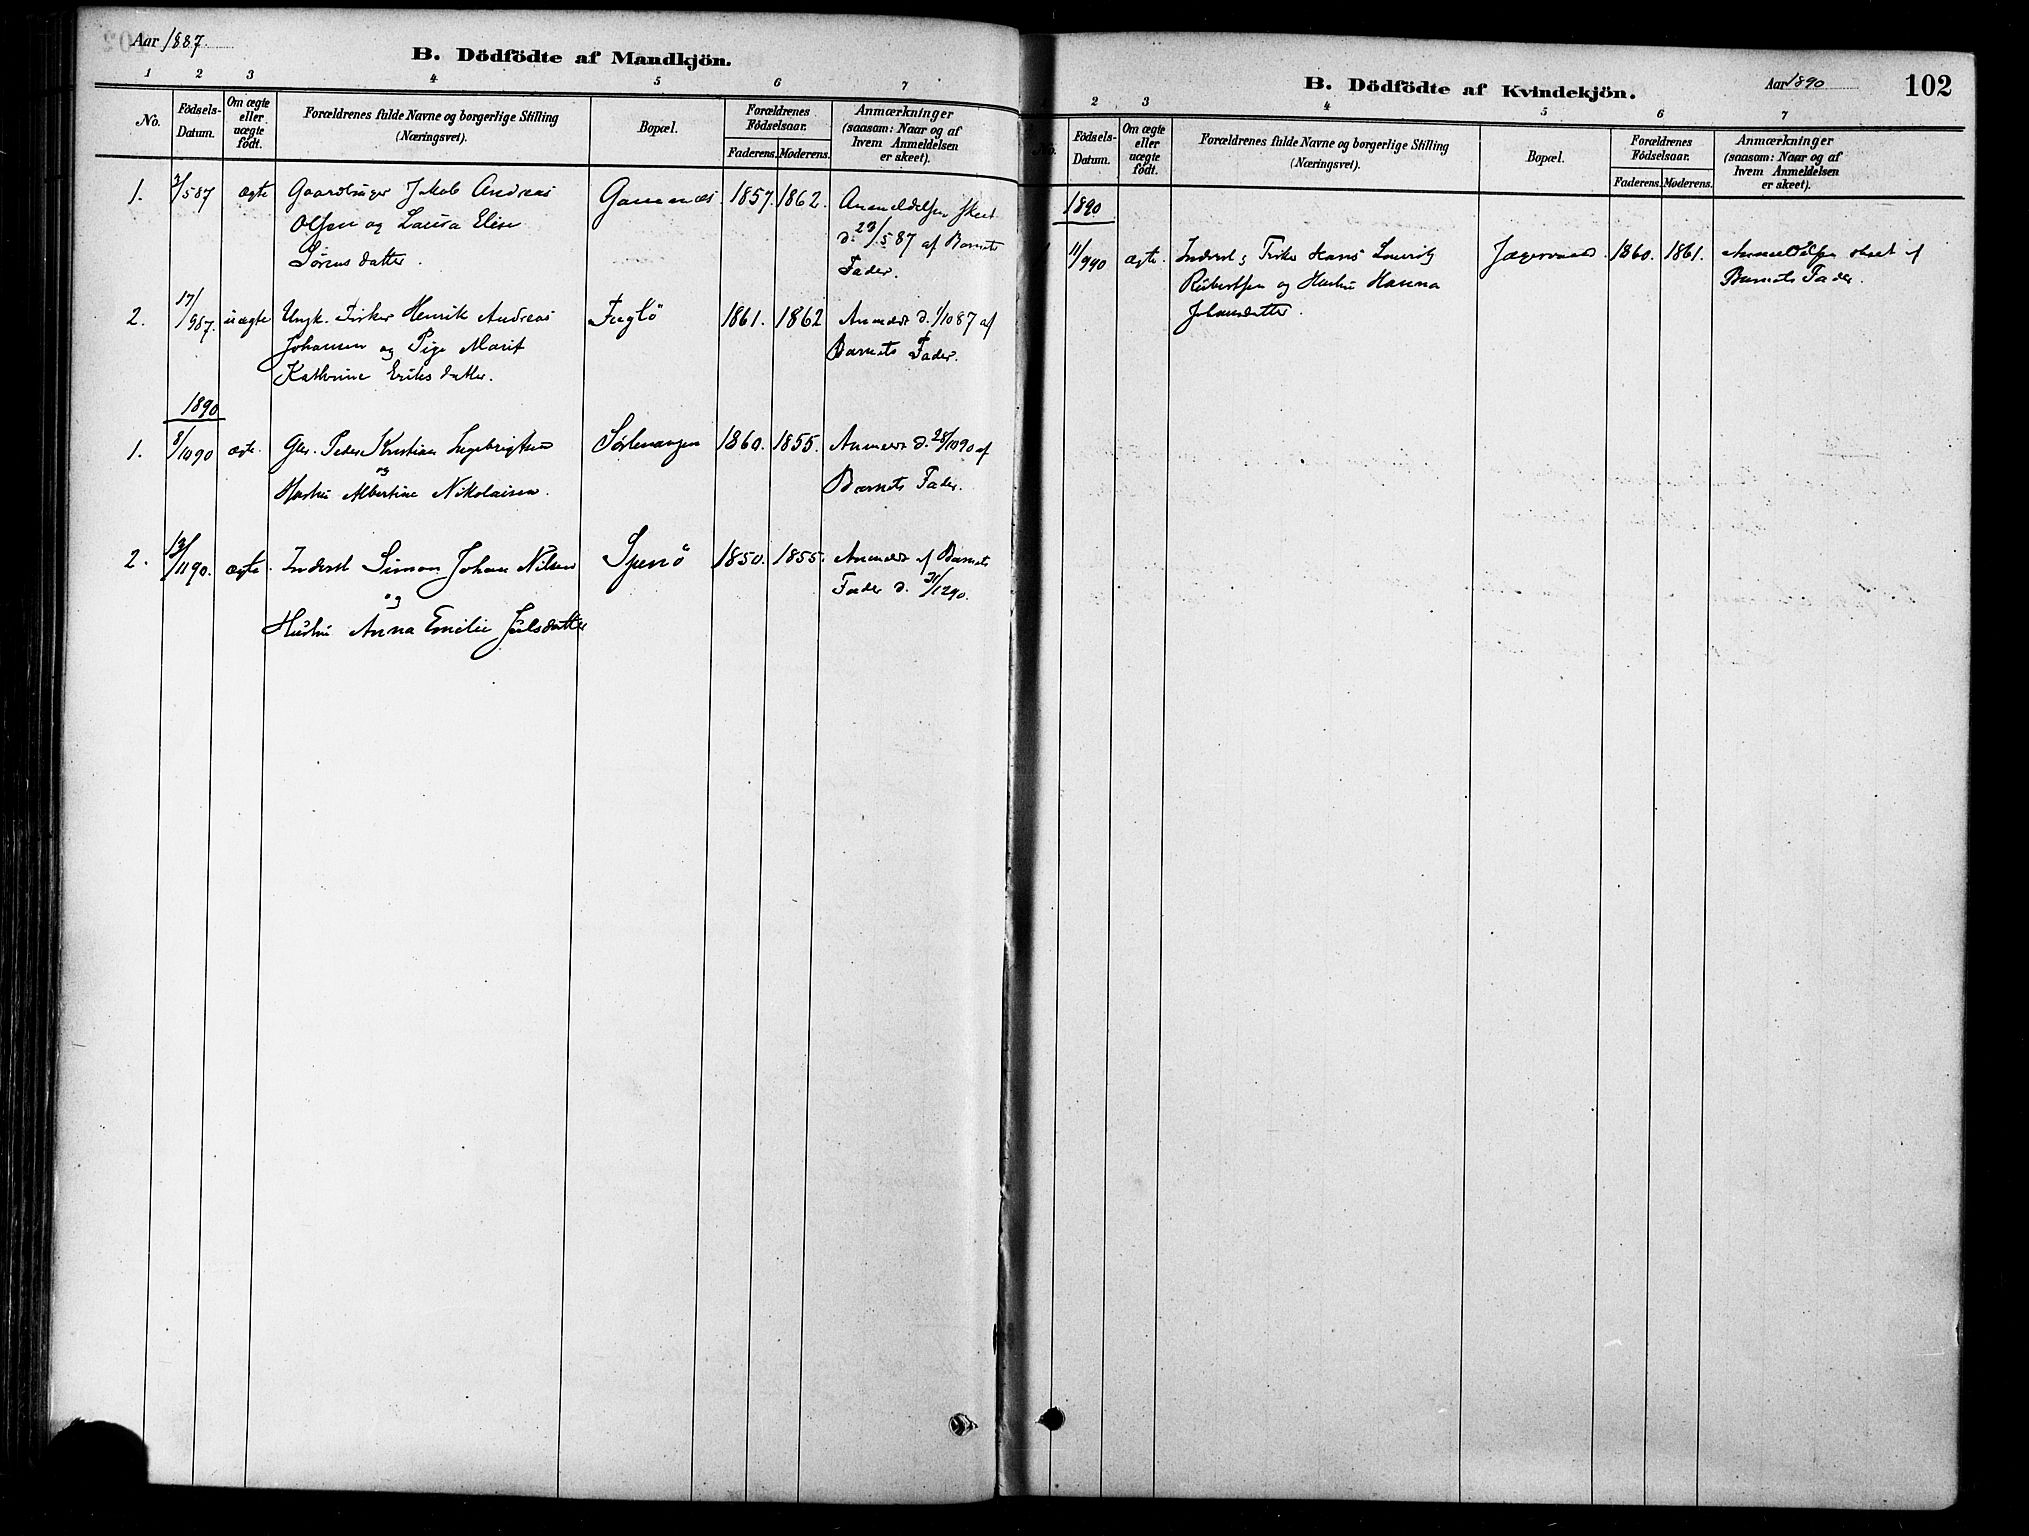 Aar 1887.
B. Dödfödte af Mandkjön.
1 2 3 4 5 6 7
No. Födsels-Datum. Om ægte eller uægte födt. Forældrenes fulde Navne og borgerlige Stilling (Næringsvei). Bopæl. Forældrenes Födselsaar. Faderens. Moderens. Anmærkninger (saasom: Naar og af hvem Anmeldelsen er skeet).
1. 2/5 87 ægte Gaardbruger Jakob Andreas Gamnæs 1857. 1862. Anmeldelsen skeet
Olsen og Laura Elise d. 29/5 87 af Barnets
Sørensdatter. Fader.
2. 17/9 87. uægte Ungk. Fisker Henrik Andreas Fuglö 1861. 1862 Anmeldt d. 1/10 87 af
Johansen og Pige Marit Barnets Fader.
Kathrine Eriksdatter.
1890
1. 8/10 90 ægte. Gbr. Peder Kristian Ingebrigtsen Sørlenangen 1860. 1855. Anmeldt d. 28/10 90 af
og
Hustru Albertine Nikolaisen. Barnets Fader.
2. 13/11 90. ægte. Inderst Simon Johan Nilsen Spenö 1850. 1855. Anmeldt af Barnets
og Fader d. 31/12 90.
Hustru Anna Emilie Julsdatter
B. Dödfödte af Kvindekjön.
Aar 1890
102
2 3 4 5 6 7
No. Födsels-Datum. Om ægte eller uægte födt. Forældrenes fulde Navne og borgerlige Stilling (Næringsvei). Bopæl. Forældrenes Födselsaar. Faderens. Moderens. Anmærkninger (saasom: Naar og af hvem Anmeldelsen er skeet).
1890
1 11/9 90 ægte. Inderst & Fisker Hans Lauritz Jægervand. 1860. 1861. Anmeldelsen skeet af
Robertsen og Hustru Hanna Barnets Fader.
Johansdatter.